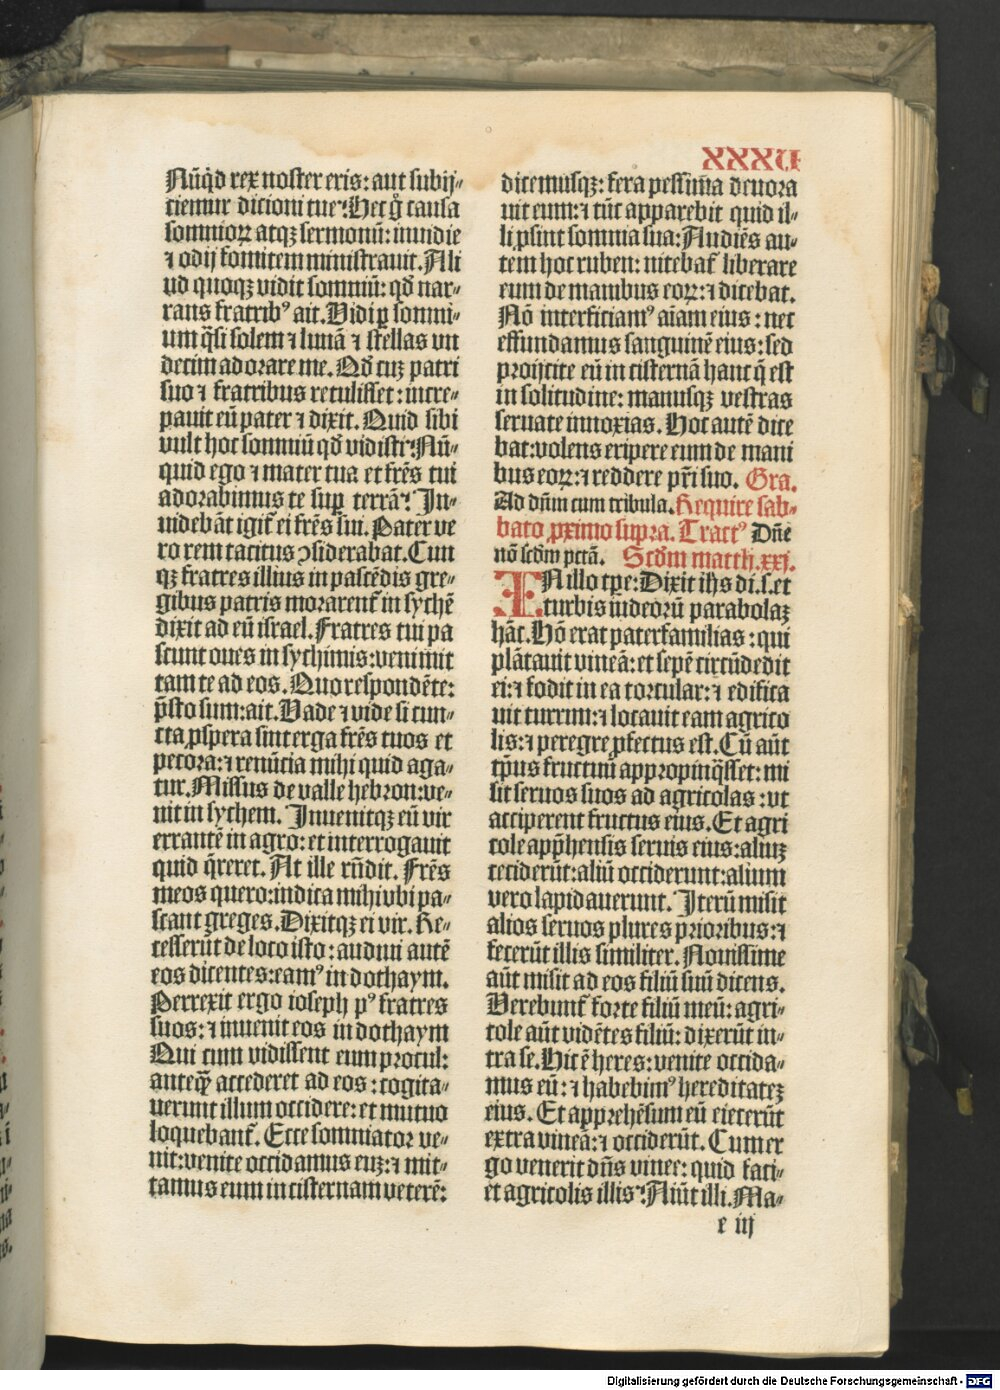 XXXV
Nūq̄d rex noster eris: aut subij-
ciemur dicioni tue? Hec g̊ causa
somnioꝝ atqꝫ sermonū: inuidie
⁊ odij fomitem ministrauit. Ali
ud quoqꝫ vidit somniū: qd̄ nar-
rans fratribꝰ ait. Vidi ꝑ somni-
um q̄si solem ⁊ lunā ⁊ stellas vn
decim adorare me. Qd̄ cuꝫ patri
suo ⁊ fratribus retulisset: incre-
pauit eū pater ⁊ dixit. Quid sibi
vult hoc somniū qd̄ vidisti? Nū-
quid ego ⁊ mater tua et fr̄es tui
adorabimus te suꝑ terrā? In-
uidebāt igit̄ ei fr̄es sui. Pater ve
ro rem tacitus ↄsiderabat. Cun
qꝫ fratres illius in pascēdis gre-
gibus patris morarent̄ in sychē
dixit ad eū israel. Fratres tui pa
scunt oues in sychimis: veni mit
tam te ad eos. Quo respondēte:
p̄sto sum: ait. Vade ⁊ vide si cun-
cta ꝓspera sint erga fr̄es tuos et
pecora: ⁊ renūcia mihi quid aga-
tur. Missus de valle hebron: ve-
nit in sychem. Inuenitqꝫ eū vir
errantē in agro: et interrogauit
quid q̄reret. At ille rn̄dit. Fr̄es
meos quero: indica mihi vbi pa-
scant greges. Dixitqꝫ ei vir. Re-
cesserūt de loco isto: audiui autē
eos dicentes: eamꝰ in dothaym.
Perrexit ergo ioseph pꝰ fratres
suos: ⁊ inuenit eos in dothaym
Qui cum vidissent eum procul:
anteqꝫ̄ accederet ad eos: cogita-
uerunt illum occidere: et mutuo
loquebant̄. Ecce somniator ve-
nit: venite occidamus euꝫ: ⁊ mit-
tamus eum in cisternam veterē:
dicemusqꝫ: fera pessima deuora
uit eum: ⁊ tūc apparebit quid il-
li ꝓsint somnia sua: Audiēs au-
tem hoc ruben: nitebat̄ liberare
eum de manibus eoꝝ: ⁊ dicebat.
Nō interficiamꝰ aīam eius: nec
effundamus sanguinē eius: sed
proijcite eū in cisternā hanc q̄ est
in solitudine: manusqꝫ vestras
seruate innoxias. Hoc autē dice
bat: volens eripere eum de mani
bus eoꝝ: ⁊ reddere pr̄i suo. Gra.
Ad dn̄m cum tribula. Require sab-
bato ꝓximo supra. Tractꝰ Dn̄e
nō scd̄m pctā. Scd̄m matth. xxi.
IN illo tꝑe: Dixit ihs di. s. et
turbis iudeorū parabolaꝫ
hāc. Hō erat paterfamilias: qui
plātauit vineā: et sepē circūdedit
ei: ⁊ fodit in ea torcular: ⁊ edifica
uit turrim: ⁊ locauit eam agrico
lis: ⁊ peregre ꝓfectus est. Cū aūt
tp̄us fructuū appropinq̄sset: mi
sit seruos suos ad agricolas: vt
acciperent fructus eius. Et agri
cole app̄hensis seruis eius: aliuꝫ
ceciderūt: aliū occiderunt: alium
vero lapidauerunt. Iterū misit
alios seruos plures prioribus: ⁊
fecerūt illis similiter. Nouissime
aūt misit ad eos filiū suū dicens.
Verebunt̄ forte filiū meū: agri-
cole aūt vidētes filiū: dixerūt in-
tra se. Hic ē heres: venite occida-
mus eū: ⁊ habebimꝰ hereditateꝫ
eius. Et apprehēsum eū eiecerūt
extra vineā: ⁊ occiderūt. Cum er
go venerit dn̄s vinee: quid faci-
et agricolis illis? Aiūt illi. Ma-
e iij
Digitalisierung gefördert durch die Deutsche Forschungsgemeinschaft - DFG